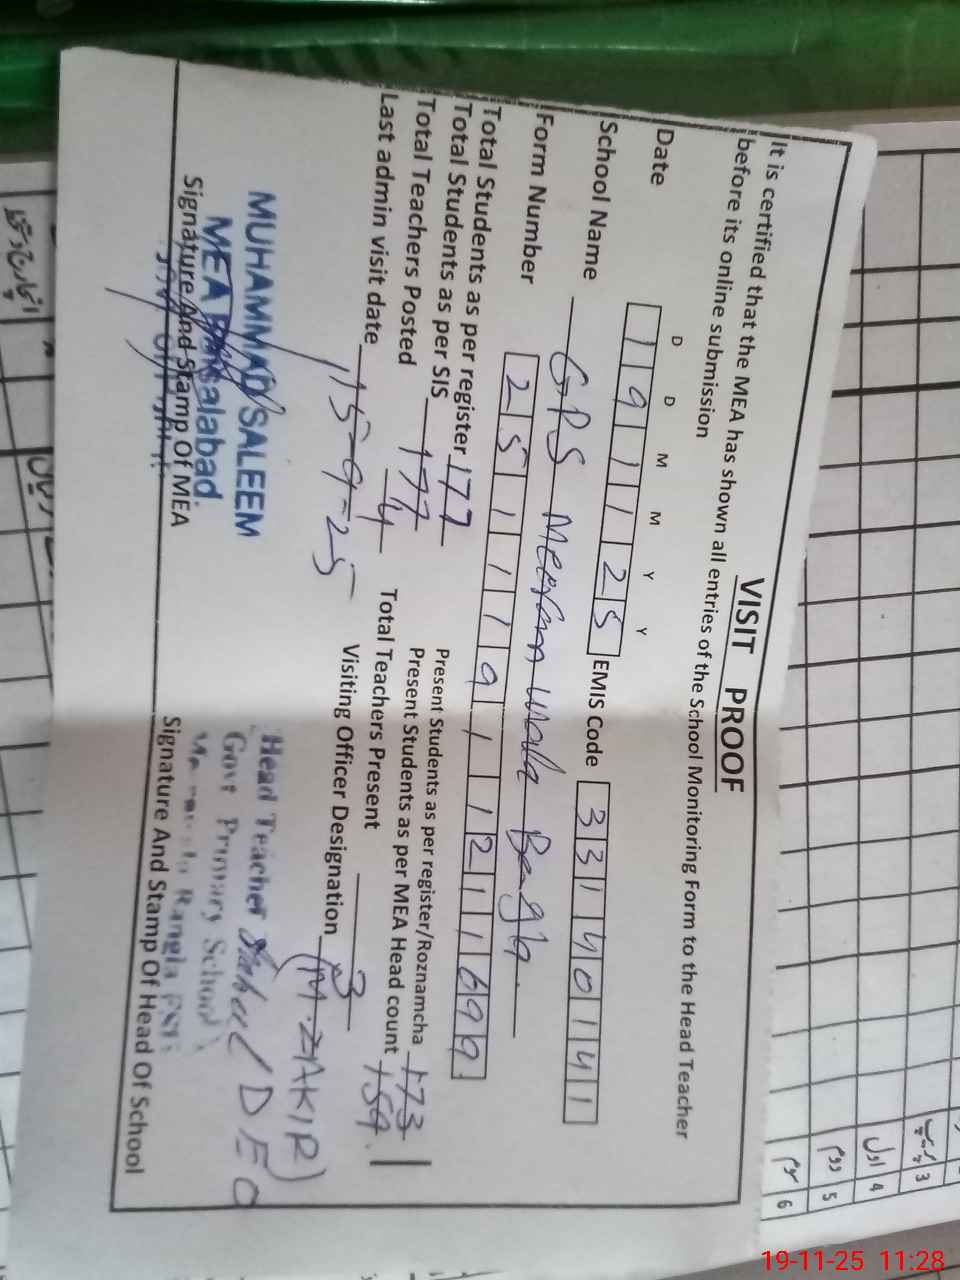 VISIT PROOF
It is certified that the MEA has shown all entries of the School Monitoring Form to the Head Teacher
before its online submission
D D M M Y Y
Date 1 9 1 1 2 5 EMIS Code 3 3 1 4 0 1 4 1
School Name GPS Meeran wala Bangla
Form Number 2 5 1 1 1 9 1 1 2 1 1 6 9 9
Total Students as per register 177 Present Students as per register/Roznamcha 173
Total Students as per SIS 177 Present Students as per MEA Head count 159
Total Teachers Posted 4 Total Teachers Present 3
Last admin visit date 15-9-25 Visiting Officer Designation (M. ZAKIR)
DEO
MUHAMMAD SALEEM
MEA Faisalabad
Signature And Stamp Of MEA
Head Teacher
Govt Primary School
Bangla FSD
Signature And Stamp Of Head Of School
3
اول 4
دوم 5
سوم 6
19-11-25 11:28